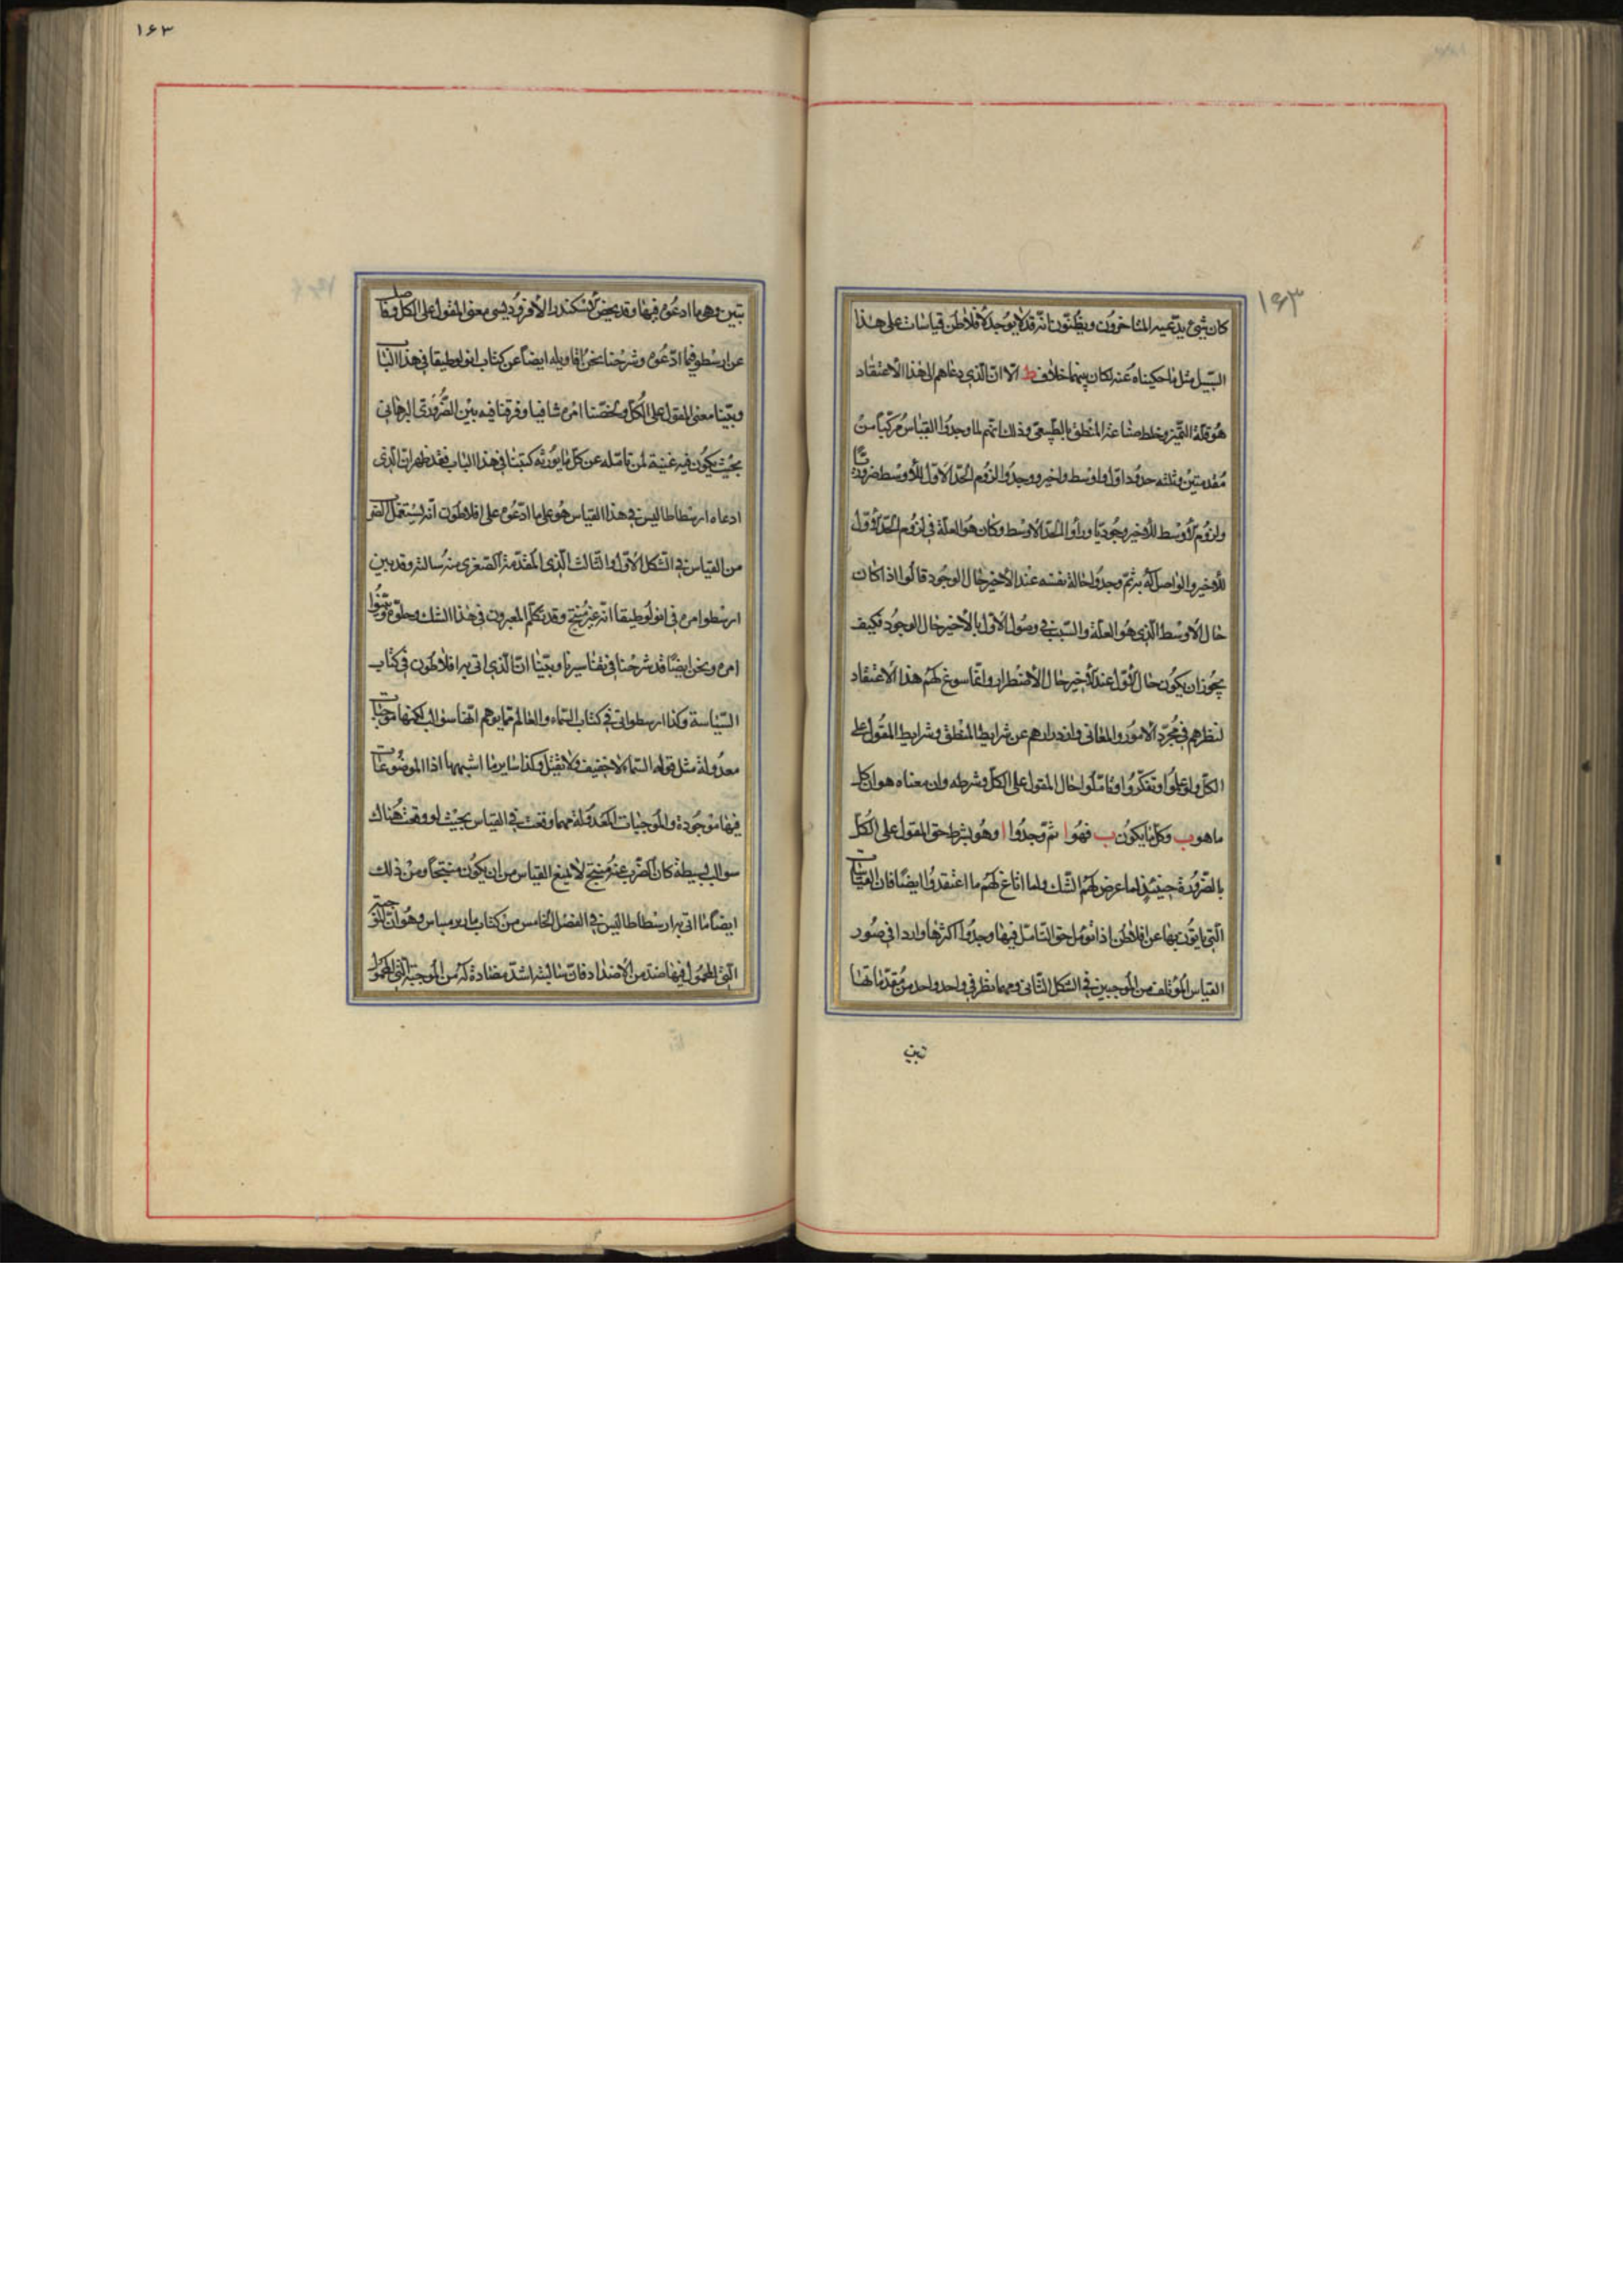 ١٦٣
١٦٣
كان شئ يدعيه المتاخرون ويظنون بانه قد لا يوجد لافلاطن قياسات على هذا
السبيل مثل ما حكيناه عنه لكان بينهما خلاف ط الا ان الذى دعاهم الى هذا الاعتقاد
هو قلة التميز وخلط صناعة المنطق بالطبيعى وذلك انهم لما وجدوا القياس مركبا من
مقدمتين وثلثه حدود اول واوسط واخير ووجدوا لزوم الحد الاول للاوسط ضروريا
ولزوم الاوسط للاخير وجوديا وراوا الحد الاوسط وكان هو العلة فى لزوم الحد الاول
للاخير والواصل له به ثم وجدوا حاله نفسه عند الاخير حال الوجود قالوا اذا كان
حال الاوسط الذى هو العلة والسبب فى وصول الاول بالاخير حال الوجود فكيف
يجوز ان يكون حال الاول عند الاخير حال الاضطرار وانما سوغ لهم هذا الاعتقاد
لنظرهم فى مجرد الامور والمعانى وازورارهم عن شرايط المنطق وشرايط المقول على
الكل ولو علموا وتفكروا وتاملوا حال المقول على الكل وشرطه وان معناه هو ان كل
ما هو ب وكل ما يكون ب فهو ا ثم وجدوا ا وهو بشرط حق المقول على الكل
بالضرورة حينئذ لما عرض لهم الشك ولما اتاغ لهم ما اعتقدوا ايضا فان القياسات
التى ياتون بها عن افلاطن اذا تومل حق التامل فيها وجدوا اكثرها واردا فى صور
القياس المؤتلف من الموجبين فى الشكل الثانى ومهما نظر فى واحد واحد من مقدماتها
تبين
تبين وهى ما ادعوه فيها وقد لخص الاسكندر الافروديسى معنى المقول على الكل وناضل
عن ارسطو فيما ادعوه وشرحنا نحن اقاويله ايضا عن كتاب انولوطيقا فى هذا الباب
وبينا معنى المقول على الكل ولخصنا امره شافيا وفرقنا فيه بين الضرورى البرهانى
بحيث يكون فيه غنية لمن تامله عن كل ما يورثه كتبنا فى هذا الباب فقد ظهر ان الذى
ادعاه ارسطاطاليس فى هذا القياس هو على ما ادعوه على افلاطون انه يستعمل الضرب
من القياس فى الشكل الاول والثالث الذى المقدمة الصغرى منه سالبة وقد بين
ارسطو امره فى انولوطيقا انه غير منتج وقد تكلم المعبرون فى هذا الشك وحلوه وبينوا
امره ونحن ايضا قد شرحنا فى تفاسيرنا وبينا ان الذى اتى به افلاطون فى كتاب
السياسة وكذا ارسطو اتى فى كتاب السماء والعالم مما يوهم انها سوالب لكنها موجبات
معدولة مثل قوله السماء لا خفيف ولا ثقيل وكذا ساير ما اشبهها اذا الموضوعات
فيها موجودة والموجبات المعدولة مهما وقعت فى القياس بحيث لو وقعت هناك
سوالب بسيطة كان الضرب غير منتج لا تمنع القياس من ان يكون منتجا ومن ذلك
ايضا ما اتى به ارسطاطاليس فى الفصل الخامس من كتاب باريرميناس وهو ان الموجبة
التى المحمول فيها ضد من الاضداد فان سالبته اشد مضادة له من الموجبة التى المحمول